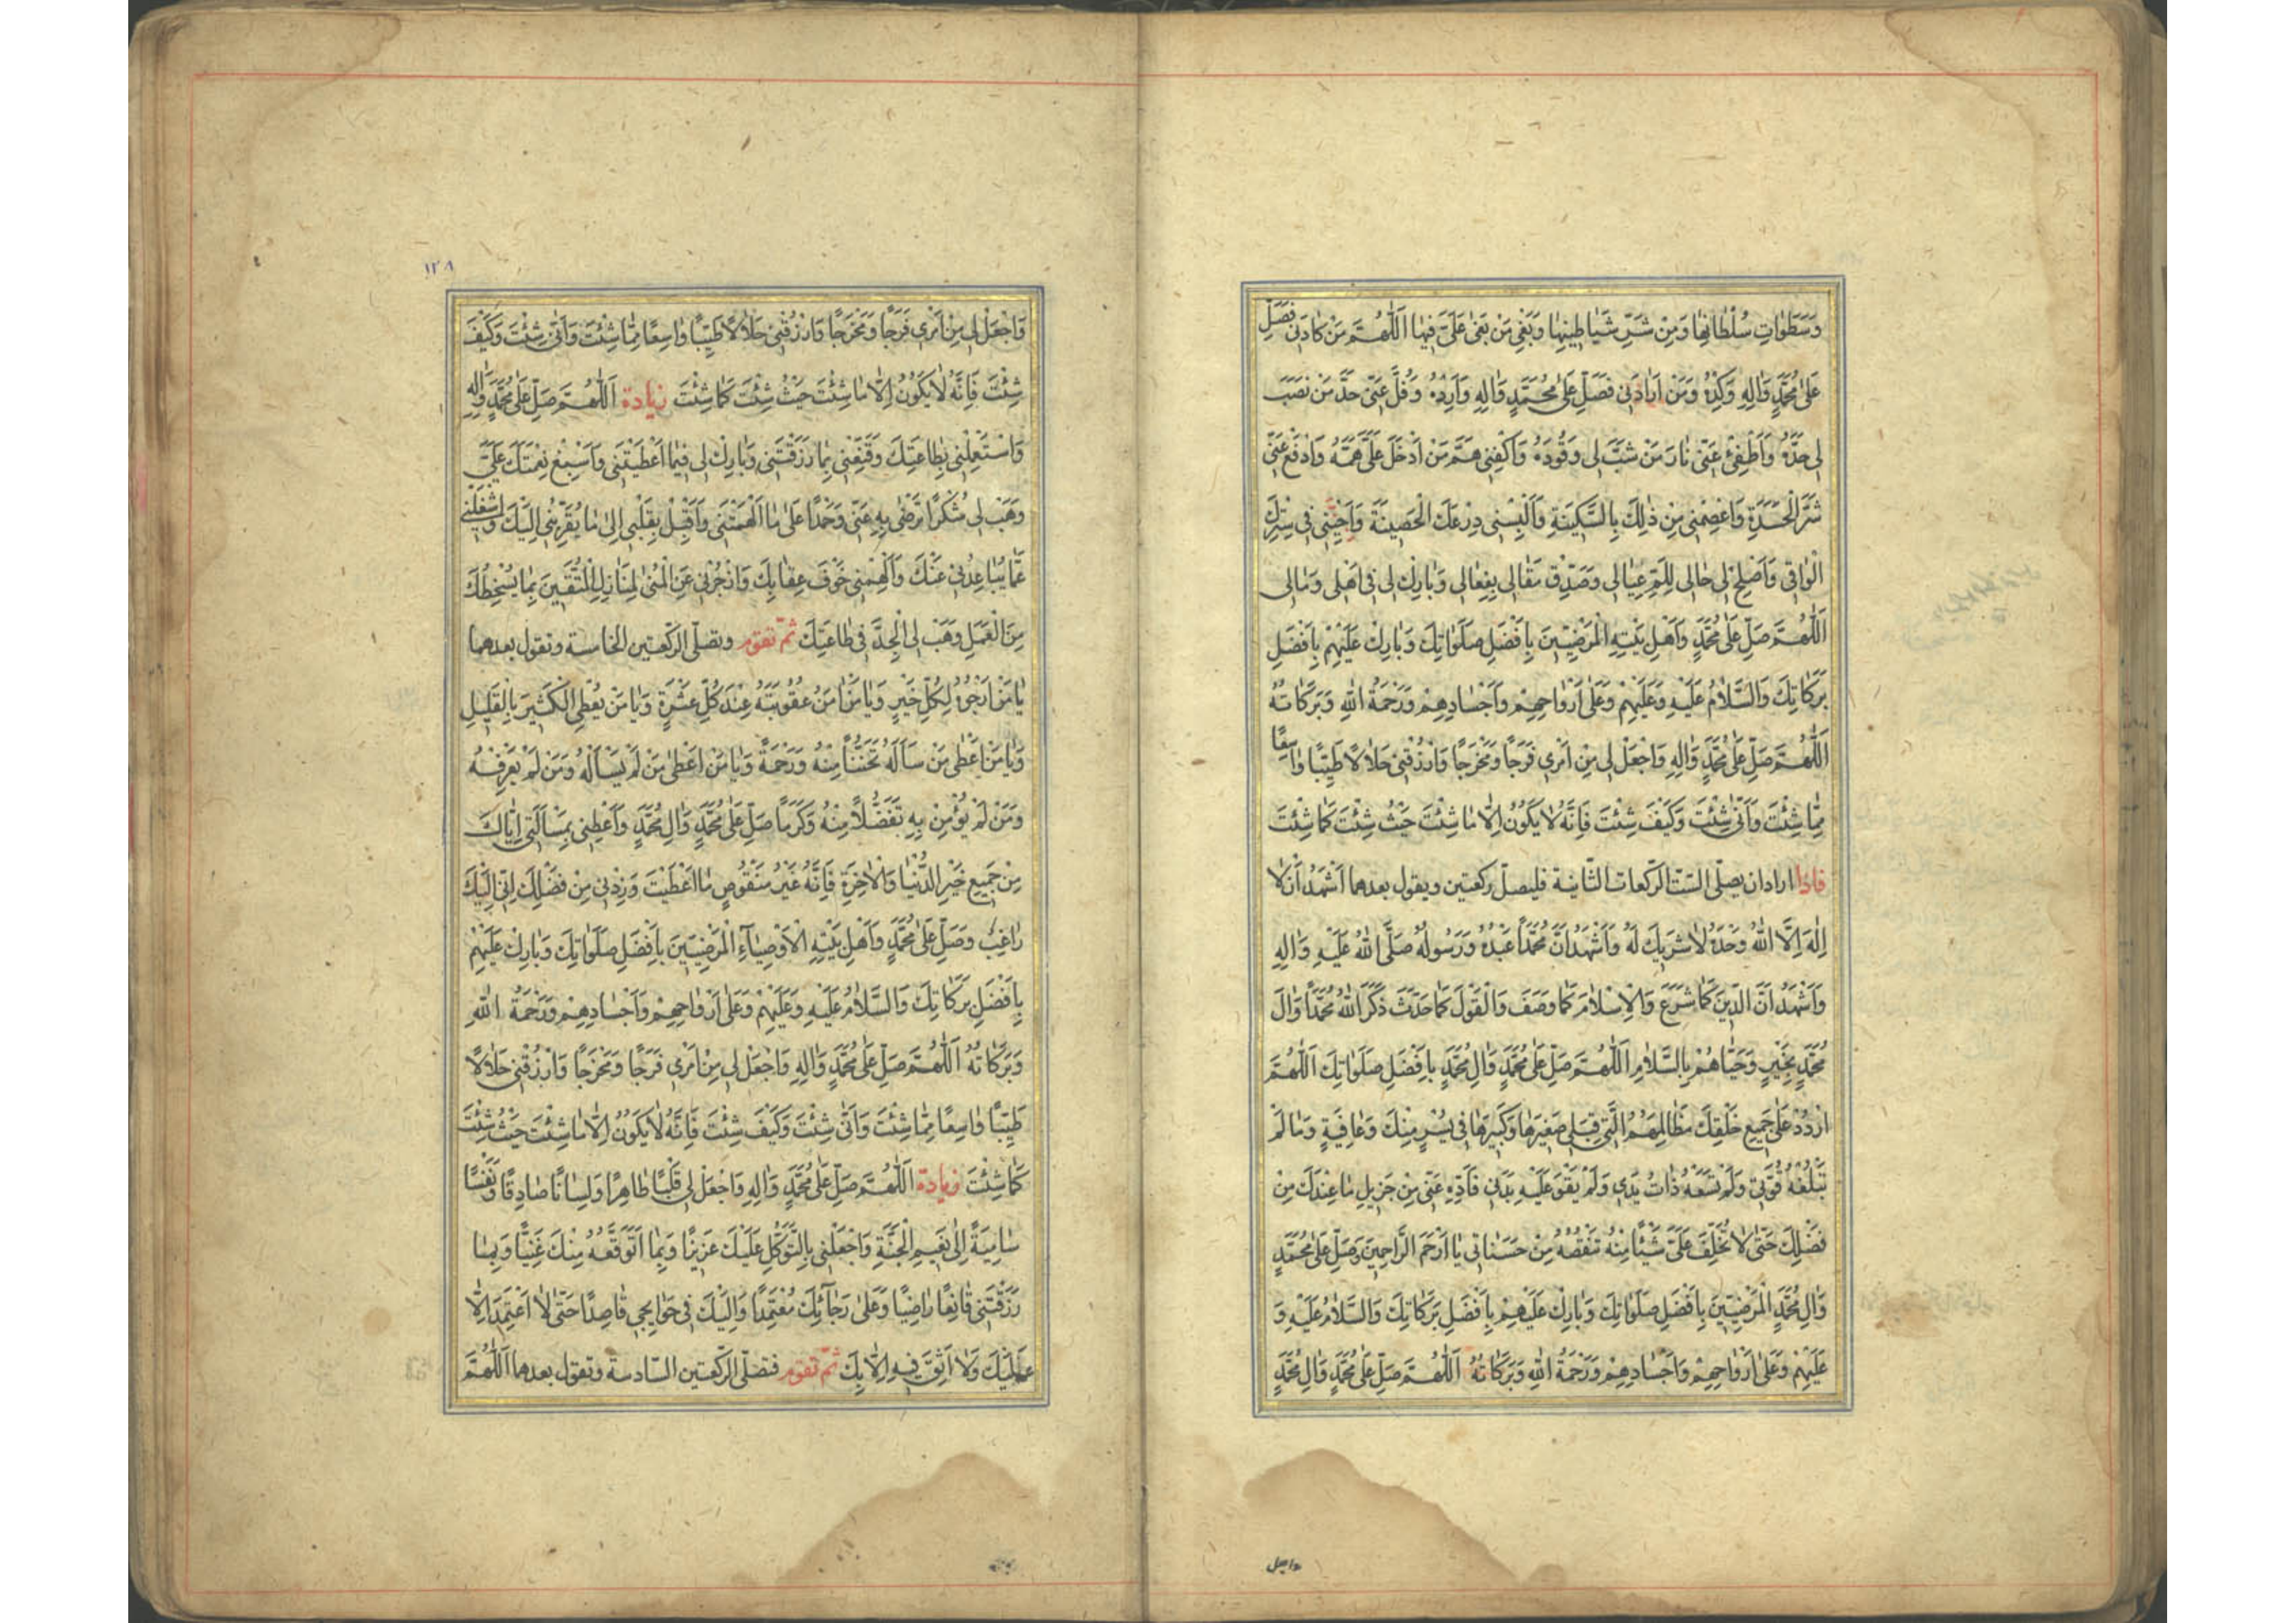 وَسَطَوَاتِ سُلْطَانِهَا وَمِنْ شَرِّ شَيَاطِينِهَا وَبَغْيِ مَنْ بَغَىٰ عَلَيَّ فِيهَا اَللّٰهُمَّ مَنْ كَادَنِي فَصَلِّ
عَلَىٰ مُحَمَّدٍ وَاٰلِهِ وَكِدْهُ وَمَنْ اَرَادَنِي فَصَلِّ عَلَىٰ مُحَمَّدٍ وَاٰلِهِ وَاَرِدْهُ وَفُلَّ عَنِّي حَدَّ مَنْ نَصَبَ
لِي حَدَّهُ وَاَطْفِئْ عَنِّي نَارَ مَنْ شَبَّ لِي وَقُودَهُ وَاكْفِنِي هَمَّ مَنْ اَدْخَلَ عَلَيَّ هَمَّهُ وَادْفَعْ عَنِّي
شَرَّ الْحَسَدَةِ وَاعْصِمْنِي مِنْ ذٰلِكَ بِالسَّكِينَةِ وَاَلْبِسْنِي دِرْعَكَ الْحَصِينَةَ وَاَحْيِنِي فِي سِتْرِكَ
الْوَاقِي وَاَصْلِحْ لِي حَالِي لِلَمِّ عِيَالِي وَصَدِّقْ مَقَالِي بِفِعَالِي وَبَارِكْ لِي فِي اَهْلِي وَمَالِي
اَللّٰهُمَّ صَلِّ عَلَىٰ مُحَمَّدٍ وَاَهْلِ بَيْتِهِ الْمَرْضِيِّينَ بِاَفْضَلِ صَلَوَاتِكَ وَبَارِكْ عَلَيْهِمْ بِاَفْضَلِ
بَرَكَاتِكَ وَالسَّلَامُ عَلَيْهِ وَعَلَيْهِمْ وَعَلَىٰ اَرْوَاحِهِمْ وَاَجْسَادِهِمْ وَرَحْمَةُ اللّٰهِ وَبَرَكَاتُهُ
اَللّٰهُمَّ صَلِّ عَلَىٰ مُحَمَّدٍ وَاٰلِهِ وَاجْعَلْ لِي مِنْ اَمْرِي فَرَجًا وَمَخْرَجًا وَارْزُقْنِي حَلَالًا طَيِّبًا وَاسِعًا
مِمَّا شِئْتَ وَاَنَّىٰ شِئْتَ وَكَيْفَ شِئْتَ فَاِنَّهُ لَا يَكُونُ اِلَّا مَا شِئْتَ حَيْثُ شِئْتَ كَمَا شِئْتَ
فاذا اراد ان يصلّى الستّ الركعات الثّانية فليصلّ ركعتين ويقول بعدهما اَشْهَدُ اَنْ لَا
اِلٰهَ اِلَّا اللّٰهُ وَحْدَهُ لَا شَرِيكَ لَهُ وَاَشْهَدُ اَنَّ مُحَمَّدًا عَبْدُهُ وَرَسُولُهُ صَلَّى اللّٰهُ عَلَيْهِ وَاٰلِهِ
وَاَشْهَدُ اَنَّ الدِّينَ كَمَا شَرَعَ وَالْاِسْلَامَ كَمَا وَصَفَ وَالْقَوْلَ كَمَا حَدَّثَ ذَكَرَ اللّٰهُ مُحَمَّدًا وَاٰلَ
مُحَمَّدٍ بِخَيْرٍ وَحَيَّاهُمْ بِالسَّلَامِ اَللّٰهُمَّ صَلِّ عَلَىٰ مُحَمَّدٍ وَاٰلِ مُحَمَّدٍ بِاَفْضَلِ صَلَوَاتِكَ اَللّٰهُمَّ
ارْدُدْ عَلَىٰ جَمِيعِ خَلْقِكَ مَظَالِمَهُمُ الَّتِي قِبَلِي صَغِيرَهَا وَكَبِيرَهَا فِي يُسْرٍ مِنْكَ وَعَافِيَةٍ وَمَا لَمْ
تَبْلُغْهُ قُوَّتِي وَلَمْ تَسَعْهُ ذَاتُ يَدِي وَلَمْ يَقْوَ عَلَيْهِ بَدَنِي فَاَدِّهِ عَنِّي مِنْ جَزِيلِ مَا عِنْدَكَ مِنْ
فَضْلِكَ حَتّٰى لَا تُخَلِّفَ عَلَيَّ شَيْئًا مِنْهُ تَنْقُصُهُ مِنْ حَسَنَاتِي يَا اَرْحَمَ الرَّاحِمِينَ وَصَلِّ عَلَىٰ مُحَمَّدٍ
وَاٰلِ مُحَمَّدٍ الْمَرْضِيِّينَ بِاَفْضَلِ صَلَوَاتِكَ وَبَارِكْ عَلَيْهِمْ بِاَفْضَلِ بَرَكَاتِكَ وَالسَّلَامُ عَلَيْهِ وَ
عَلَيْهِمْ وَعَلَىٰ اَرْوَاحِهِمْ وَاَجْسَادِهِمْ وَرَحْمَةُ اللّٰهِ وَبَرَكَاتُهُ اَللّٰهُمَّ صَلِّ عَلَىٰ مُحَمَّدٍ وَاٰلِ مُحَمَّدٍ
واجعل
١٢٨
وَاجْعَلْ لِي مِنْ اَمْرِي فَرَجًا وَمَخْرَجًا وَارْزُقْنِي حَلَالًا طَيِّبًا وَاسِعًا مِمَّا شِئْتَ وَاَنَّىٰ شِئْتَ وَكَيْفَ
شِئْتَ فَاِنَّهُ لَا يَكُونُ اِلَّا مَا شِئْتَ حَيْثُ شِئْتَ كَمَا شِئْتَ زيادة اَللّٰهُمَّ صَلِّ عَلَىٰ مُحَمَّدٍ وَاٰلِهِ
وَاسْتَعْمِلْنِي بِطَاعَتِكَ وَقَنِّعْنِي بِمَا رَزَقْتَنِي وَبَارِكْ لِي فِيمَا اَعْطَيْتَنِي وَاَسْبِغْ نِعْمَتَكَ عَلَيَّ
وَهَبْ لِي شُكْرًا تَرْضَىٰ بِهِ عَنِّي وَحَمْدًا عَلَىٰ مَا اَلْهَمْتَنِي وَاَقْبِلْ بِقَلْبِي اِلَىٰ مَا يُقَرِّبُنِي اِلَيْكَ وَاشْغَلْنِي
عَمَّا يُبَاعِدُنِي عَنْكَ وَاَلْهِمْنِي خَوْفَ عِقَابِكَ وَازْجُرْنِي عَنِ الْمُنَىٰ لِمَنَازِلِ الْمُتَّقِينَ بِمَا يُسْخِطُكَ
مِنَ الْعَمَلِ وَهَبْ لِيَ الْجِدَّ فِي طَاعَتِكَ ثمّ تقوم وتصلّى الرّكعتين الخامسة وتقول بعدهما
يَا مَنْ اَرْجُوهُ لِكُلِّ خَيْرٍ وَيَا مَنْ اٰمَنُ عُقُوبَتَهُ عِنْدَ كُلِّ عَثْرَةٍ وَيَا مَنْ يُعْطِي الْكَثِيرَ بِالْقَلِيلِ
وَيَا مَنْ اَعْطَىٰ مَنْ سَاَلَهُ تَحَنُّنًا مِنْهُ وَرَحْمَةً وَيَا مَنْ اَعْطَىٰ مَنْ لَمْ يَسْاَلْهُ وَمَنْ لَمْ يَعْرِفْهُ
وَمَنْ لَمْ يُؤْمِنْ بِهِ تَفَضُّلًا مِنْهُ وَكَرَمًا صَلِّ عَلَىٰ مُحَمَّدٍ وَاٰلِ مُحَمَّدٍ وَاَعْطِنِي بِمَسْاَلَتِي اِيَّاكَ
مِنْ جَمِيعِ خَيْرِ الدُّنْيَا وَالْاٰخِرَةِ فَاِنَّهُ غَيْرُ مَنْقُوصٍ مَا اَعْطَيْتَ وَزِدْنِي مِنْ فَضْلِكَ اِنِّي اِلَيْكَ
رَاغِبٌ وَصَلِّ عَلَىٰ مُحَمَّدٍ وَاَهْلِ بَيْتِهِ الْاَوْصِيَاءِ الْمَرْضِيِّينَ بِاَفْضَلِ صَلَوَاتِكَ وَبَارِكْ عَلَيْهِمْ
بِاَفْضَلِ بَرَكَاتِكَ وَالسَّلَامُ عَلَيْهِ وَعَلَيْهِمْ وَعَلَىٰ اَرْوَاحِهِمْ وَاَجْسَادِهِمْ وَرَحْمَةُ اللّٰهِ
وَبَرَكَاتُهُ اَللّٰهُمَّ صَلِّ عَلَىٰ مُحَمَّدٍ وَاٰلِهِ وَاجْعَلْ لِي مِنْ اَمْرِي فَرَجًا وَمَخْرَجًا وَارْزُقْنِي حَلَالًا
طَيِّبًا وَاسِعًا مِمَّا شِئْتَ وَاَنَّىٰ شِئْتَ وَكَيْفَ شِئْتَ فَاِنَّهُ لَا يَكُونُ اِلَّا مَا شِئْتَ حَيْثُ شِئْتَ
كَمَا شِئْتَ زيادة اَللّٰهُمَّ صَلِّ عَلَىٰ مُحَمَّدٍ وَاٰلِهِ وَاجْعَلْ لِي قَلْبًا طَاهِرًا وَلِسَانًا صَادِقًا وَنَفْسًا
سَامِيَةً اِلَىٰ نَعِيمِ الْجَنَّةِ وَاجْعَلْنِي بِالتَّوَكُّلِ عَلَيْكَ عَزِيزًا وَبِمَا اَتَوَقَّعُهُ مِنْكَ غَنِيًّا وَبِمَا
رَزَقْتَنِي قَانِعًا رَاضِيًا وَعَلَىٰ رَجَائِكَ مُعْتَمِدًا وَاِلَيْكَ فِي حَوَايِجِي قَاصِدًا حَتّٰى لَا اَعْتَمِدَ اِلَّا
عَلَيْكَ وَلَا اَثِقَ فِيهِ اِلَّا بِكَ ثمّ تقوم فتصلّى الرّكعتين السّادسة وتقول بعدهما اَللّٰهُمَّ